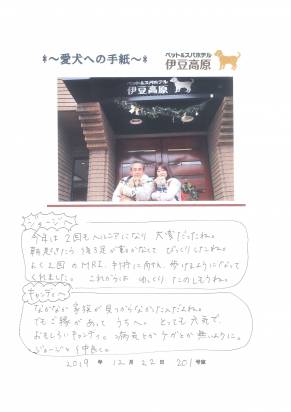 *～愛犬への手紙～*
ペット&スパホテル
伊豆高原
ジョージへ
今年は2回もヘルニアになり大変だったね。
朝起きたら後ろ足が動かなくてびっくりしたね。
よく2回のMRI、手術に向き合い、歩けるようになって
くれました。これからは ゆっくりたのしもうね。
キャンディへ
なかなか家族が見つからなかったんだよね。
でもご縁があって うちへ。とっても元気で
おもしろいキャンディ。病気とかケガとか無いように。
ジョージと仲良く。
2019 年 12 月 22 日 201 号室